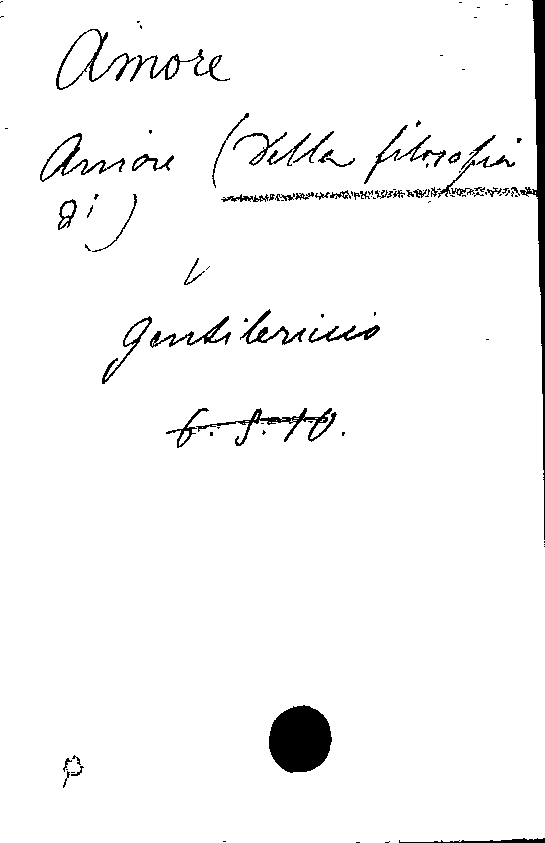 Amore
Amore (Della filosofia
di)
V
Gentilericcio
6. 8. 10.